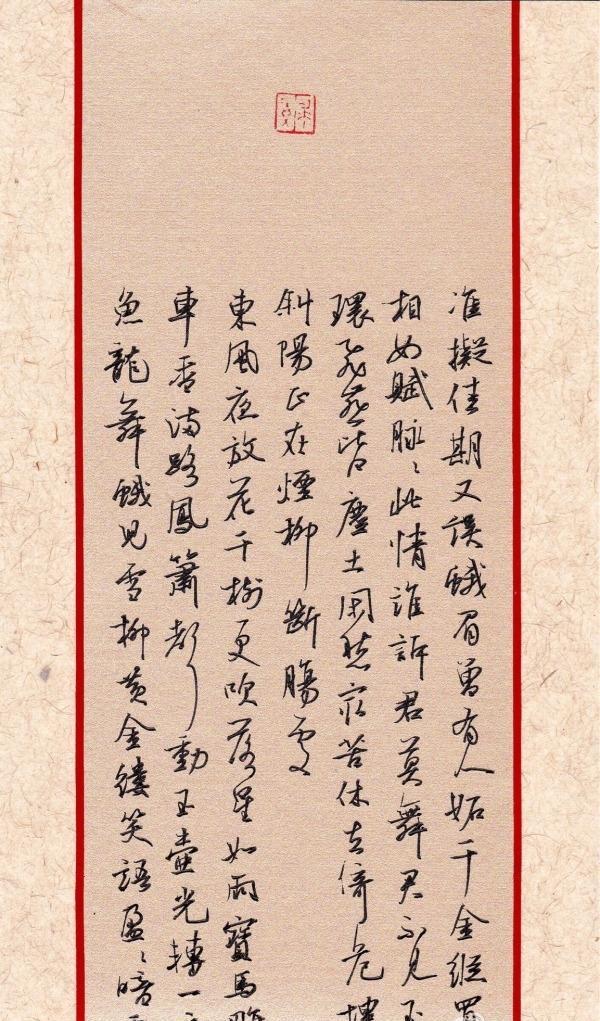 准擬佳期又誤蛾眉曾有人妬千金縱買
相如賦脉〻此情誰訴君莫舞君不見玉
環飛燕皆塵土閑愁最苦休去倚危樓
斜陽正在煙柳斷腸處
東風夜放花千樹更吹落星如雨寶馬雕
車香滿路鳳簫聲動玉壺光轉一
魚龍舞蛾兒雪柳黃金縷笑語盈〻暗